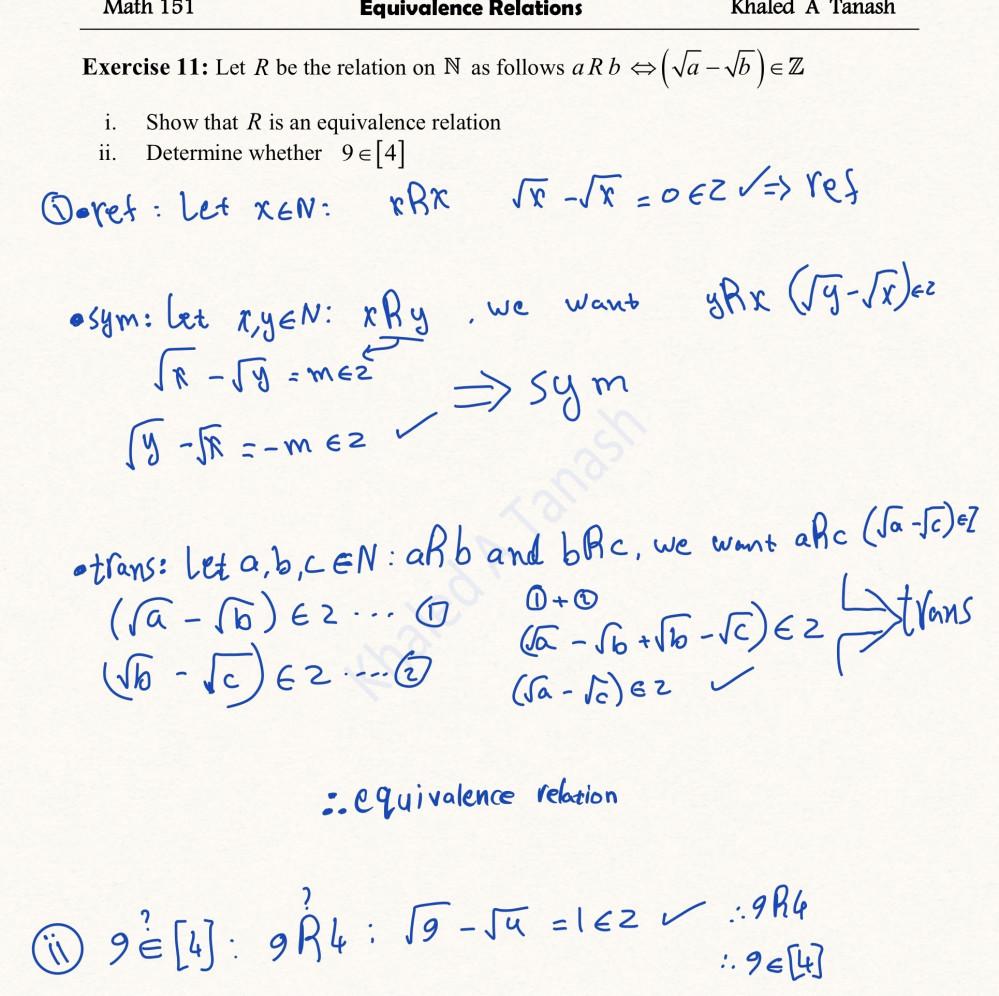 Math 151 Equivalence Relations Khaled A Tanash
Exercise 11: Let R be the relation on ℕ as follows a R b ⇔ (√a − √b) ∈ ℤ
i. Show that R is an equivalence relation
ii. Determine whether 9 ∈ [4]
① •ref : Let x∈N: xRx √x − √x = 0 ∈ Z ✓ ⇒ ref
•sym: Let x,y∈N: xRy , we want yRx (√y − √x) ∈ Z
√x − √y = m ∈ Z
⇒ sym
√y − √x = −m ∈ Z ✓
•trans: Let a,b,c ∈ N : aRb and bRc, we want aRc (√a − √c) ∈ Z
(√a − √b) ∈ Z ... ① ① + ②
(√b − √c) ∈ Z ..... ② (√a − √b + √b − √c) ∈ Z ⇒ trans
(√a − √c) ∈ Z ✓
Khaled A Tanash
∴ equivalence relation
ⅱ 9 ∈? [4] : 9 R? 4 : √9 − √4 = 1 ∈ Z ✓ ∴ 9R4
∴ 9 ∈ [4]